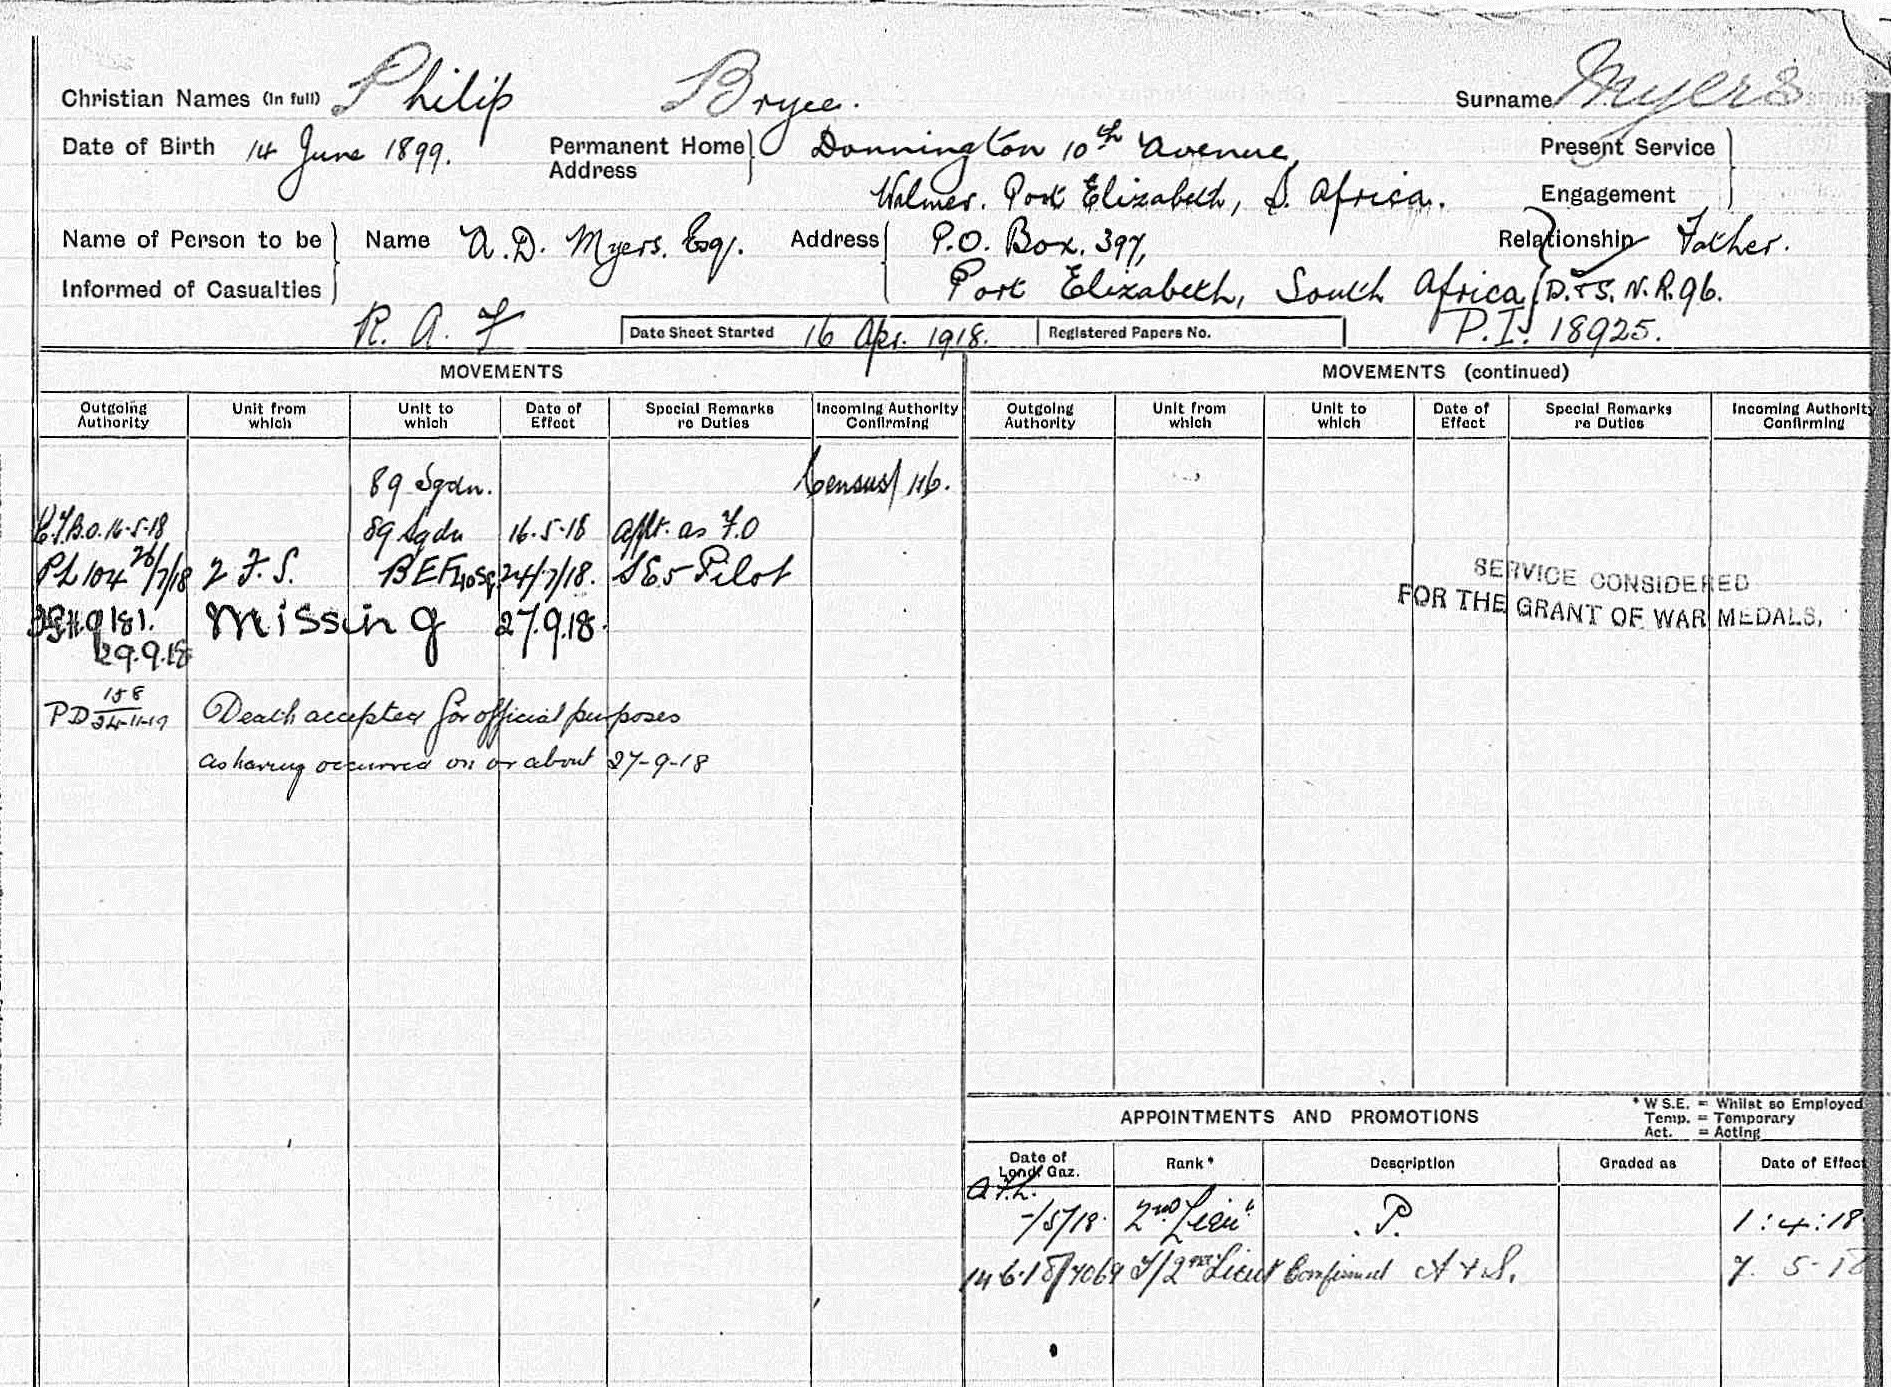 Christian Names (In full) Philip Bryce. Surname Myers
Date of Birth 14 June 1899. Permanent Home Address Donnington 10th Avenue, Present Service
Walmer. Port Elizabeth, S. Africa. Engagement
Name of Person to be Informed of Casualties Name A. D. Myers. Esq. Address P.O. Box. 397, Relationship Father.
Port Elizabeth, South Africa D.&S. N.R. 96.
R. A. F Date Sheet Started 16 Apr. 1918. Registered Papers No. P.I. 18925.
MOVEMENTS
Outgoing Authority Unit from which Unit to which Date of Effect Special Remarks re Duties Incoming Authority Confirming
89 Sqdn. Census/116.
16-5-18 89 Sqdn 16-5-18 appt. as F.O
PL 104 26/7/18 2 F.S. BEF 40 Sq. 24/7/18. SE5 Pilot
181. Missing 27.9.18.
29.9.18
PD 158 24-11-19 Death accepted for official purposes
as having occurred on or about 27-9-18
MOVEMENTS (continued)
Outgoing Authority Unit from which Unit to which Date of Effect Special Remarks re Duties Incoming Authority Confirming
SERVICE CONSIDERED
FOR THE GRANT OF WAR MEDALS.
APPOINTMENTS AND PROMOTIONS
* W S.E. = Whilst so Employed
Temp. = Temporary
Act. = Acting
Date of Lond. Gaz. Rank* Description Graded as Date of Effect
-/5/18. 2nd Lieut P. 1:4:18
14.6.18/7069 T/2nd Lieut Confirmed A & S. 7. 5-18